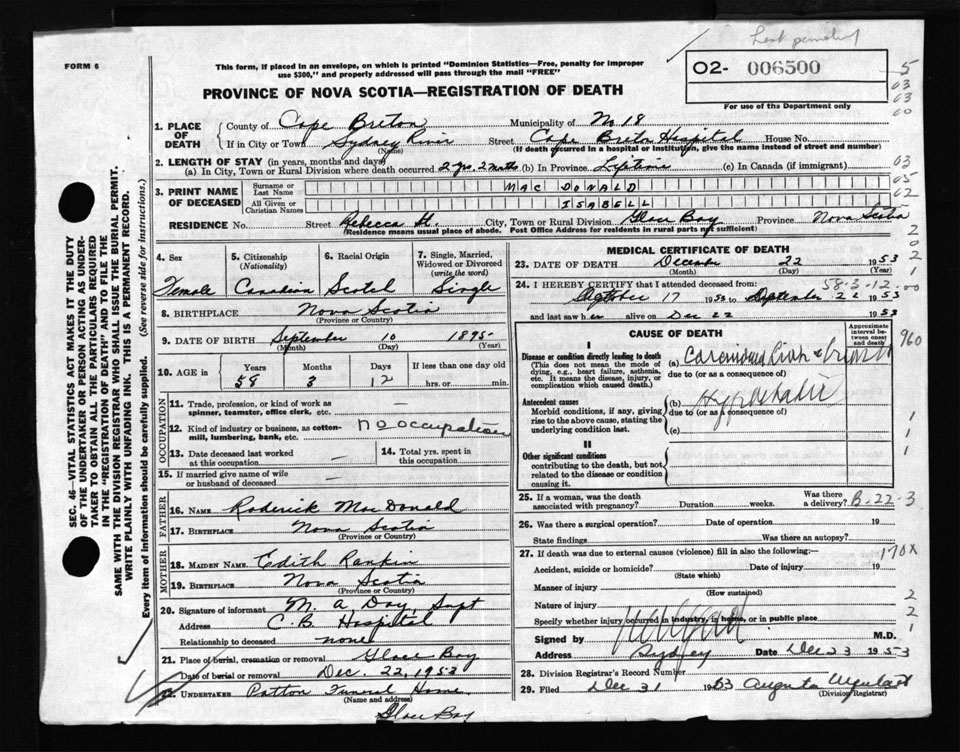 Last penalty
FORM 6
This form, if placed in an envelope, on which is printed "Dominion Statistics—Free, penalty for improper
use $300," and properly addressed will pass through the mail "FREE"
PROVINCE OF NOVA SCOTIA—REGISTRATION OF DEATH
02- 006500
For use of the Department only
1. PLACE OF DEATH
County of Cape Breton Municipality of No 18
If in City or Town Sydney River Street Cape Breton Hospital House No.
(Name) (If death occurred in a hospital or institution, give the name instead of street and number)
2. LENGTH OF STAY (in years, months and days)
(a) In City, Town or Rural Division where death occurred 2 yrs. 2 mths (b) In Province Lifetime (c) In Canada (if immigrant)
3. PRINT NAME OF DECEASED
Surname or Last Name MAC DONALD
All Given or Christian Names ISABELL
RESIDENCE No. Street Rebecca St. City, Town or Rural Division Glace Bay Province Nova Scotia
(Residence means usual place of abode. Post Office Address for residents in rural parts not sufficient)
4. Sex
Female
5. Citizenship
(Nationality)
Canadian
6. Racial Origin
Scotch
7. Single, Married, Widowed or Divorced
(write the word)
Single
8. BIRTHPLACE Nova Scotia
(Province or Country)
9. DATE OF BIRTH September 10 1895
(Month) (Day) (Year)
10. AGE in Years Months Days If less than one day old
58 3 12 hrs. or min.
OCCUPATION
11. Trade, profession, or kind of work as
spinner, teamster, office clerk, etc. —
12. Kind of industry or business, as cotton-
mill, lumbering, bank, etc. no occupation
13. Date deceased last worked
at this occupation —
14. Total yrs. spent
in this occupation
15. If married give name of wife
or husband of deceased —
FATHER
16. NAME Roderick MacDonald
17. BIRTHPLACE Nova Scotia
(Province or Country)
MOTHER
18. MAIDEN NAME Edith Rankin
19. BIRTHPLACE Nova Scotia
(Province or Country)
20. Signature of informant M. A. Day, Supt
Address C.B. Hospital
Relationship to deceased none
21. Place of burial, cremation or removal Glace Bay
Date of burial or removal Dec. 22, 1953
22. UNDERTAKER Patton Funeral Home
(Name and address)
Glace Bay
MEDICAL CERTIFICATE OF DEATH
23. DATE OF DEATH December 22 1953
(Month) (Day) (Year)
58-3-12
24. I HEREBY CERTIFY that I attended deceased from:
October 17 1953 to September 22 1953
and last saw her alive on Dec 22 1953
CAUSE OF DEATH
Approximate interval between onset and death
I
Disease or condition directly leading to death
(This does not mean the mode of dying, e.g., heart failure, asthenia, etc. It means the disease, injury, or complication which caused death.)
(a) Carcinoma
due to (or as a consequence of)
Antecedent causes
Morbid conditions, if any, giving rise to the above cause, stating the underlying condition last.
(b) Hypostatic
due to (or as a consequence of)
(c)
II
Other significant conditions
contributing to the death, but not related to the disease or condition causing it.
25. If a woman, was the death
associated with pregnancy? Duration weeks. Was there a delivery? B-22-3
26. Was there a surgical operation? Date of operation 19
State findings Was there an autopsy?
27. If death was due to external causes (violence) fill in also the following:—
170X
Accident, suicide or homicide? Date of injury 19
(State which)
Manner of injury
(How sustained)
Nature of injury
Specify whether injury occurred in industry, in home, or in public place
Signed by M.D.
Address Sydney Date Dec 23 1953
28. Division Registrar's Record Number
29. Filed Dec 31 1953 Augusta Urquhart
(Division Registrar)
SEC. 46—VITAL STATISTICS ACT MAKES IT THE DUTY
OF THE UNDERTAKER OR PERSON ACTING AS UNDER-
TAKER TO OBTAIN ALL THE PARTICULARS REQUIRED
IN THE "REGISTRATION OF DEATH" AND TO FILE THE
SAME WITH THE DIVISION REGISTRAR WHO SHALL ISSUE THE BURIAL PERMIT.
WRITE PLAINLY WITH UNFADING INK. THIS IS A PERMANENT RECORD.
Every item of information should be carefully supplied. (See reverse side for instructions.)
5
03
03
00
03
05
02
2
0
2
1
00
960
1
1
1
2
2
1